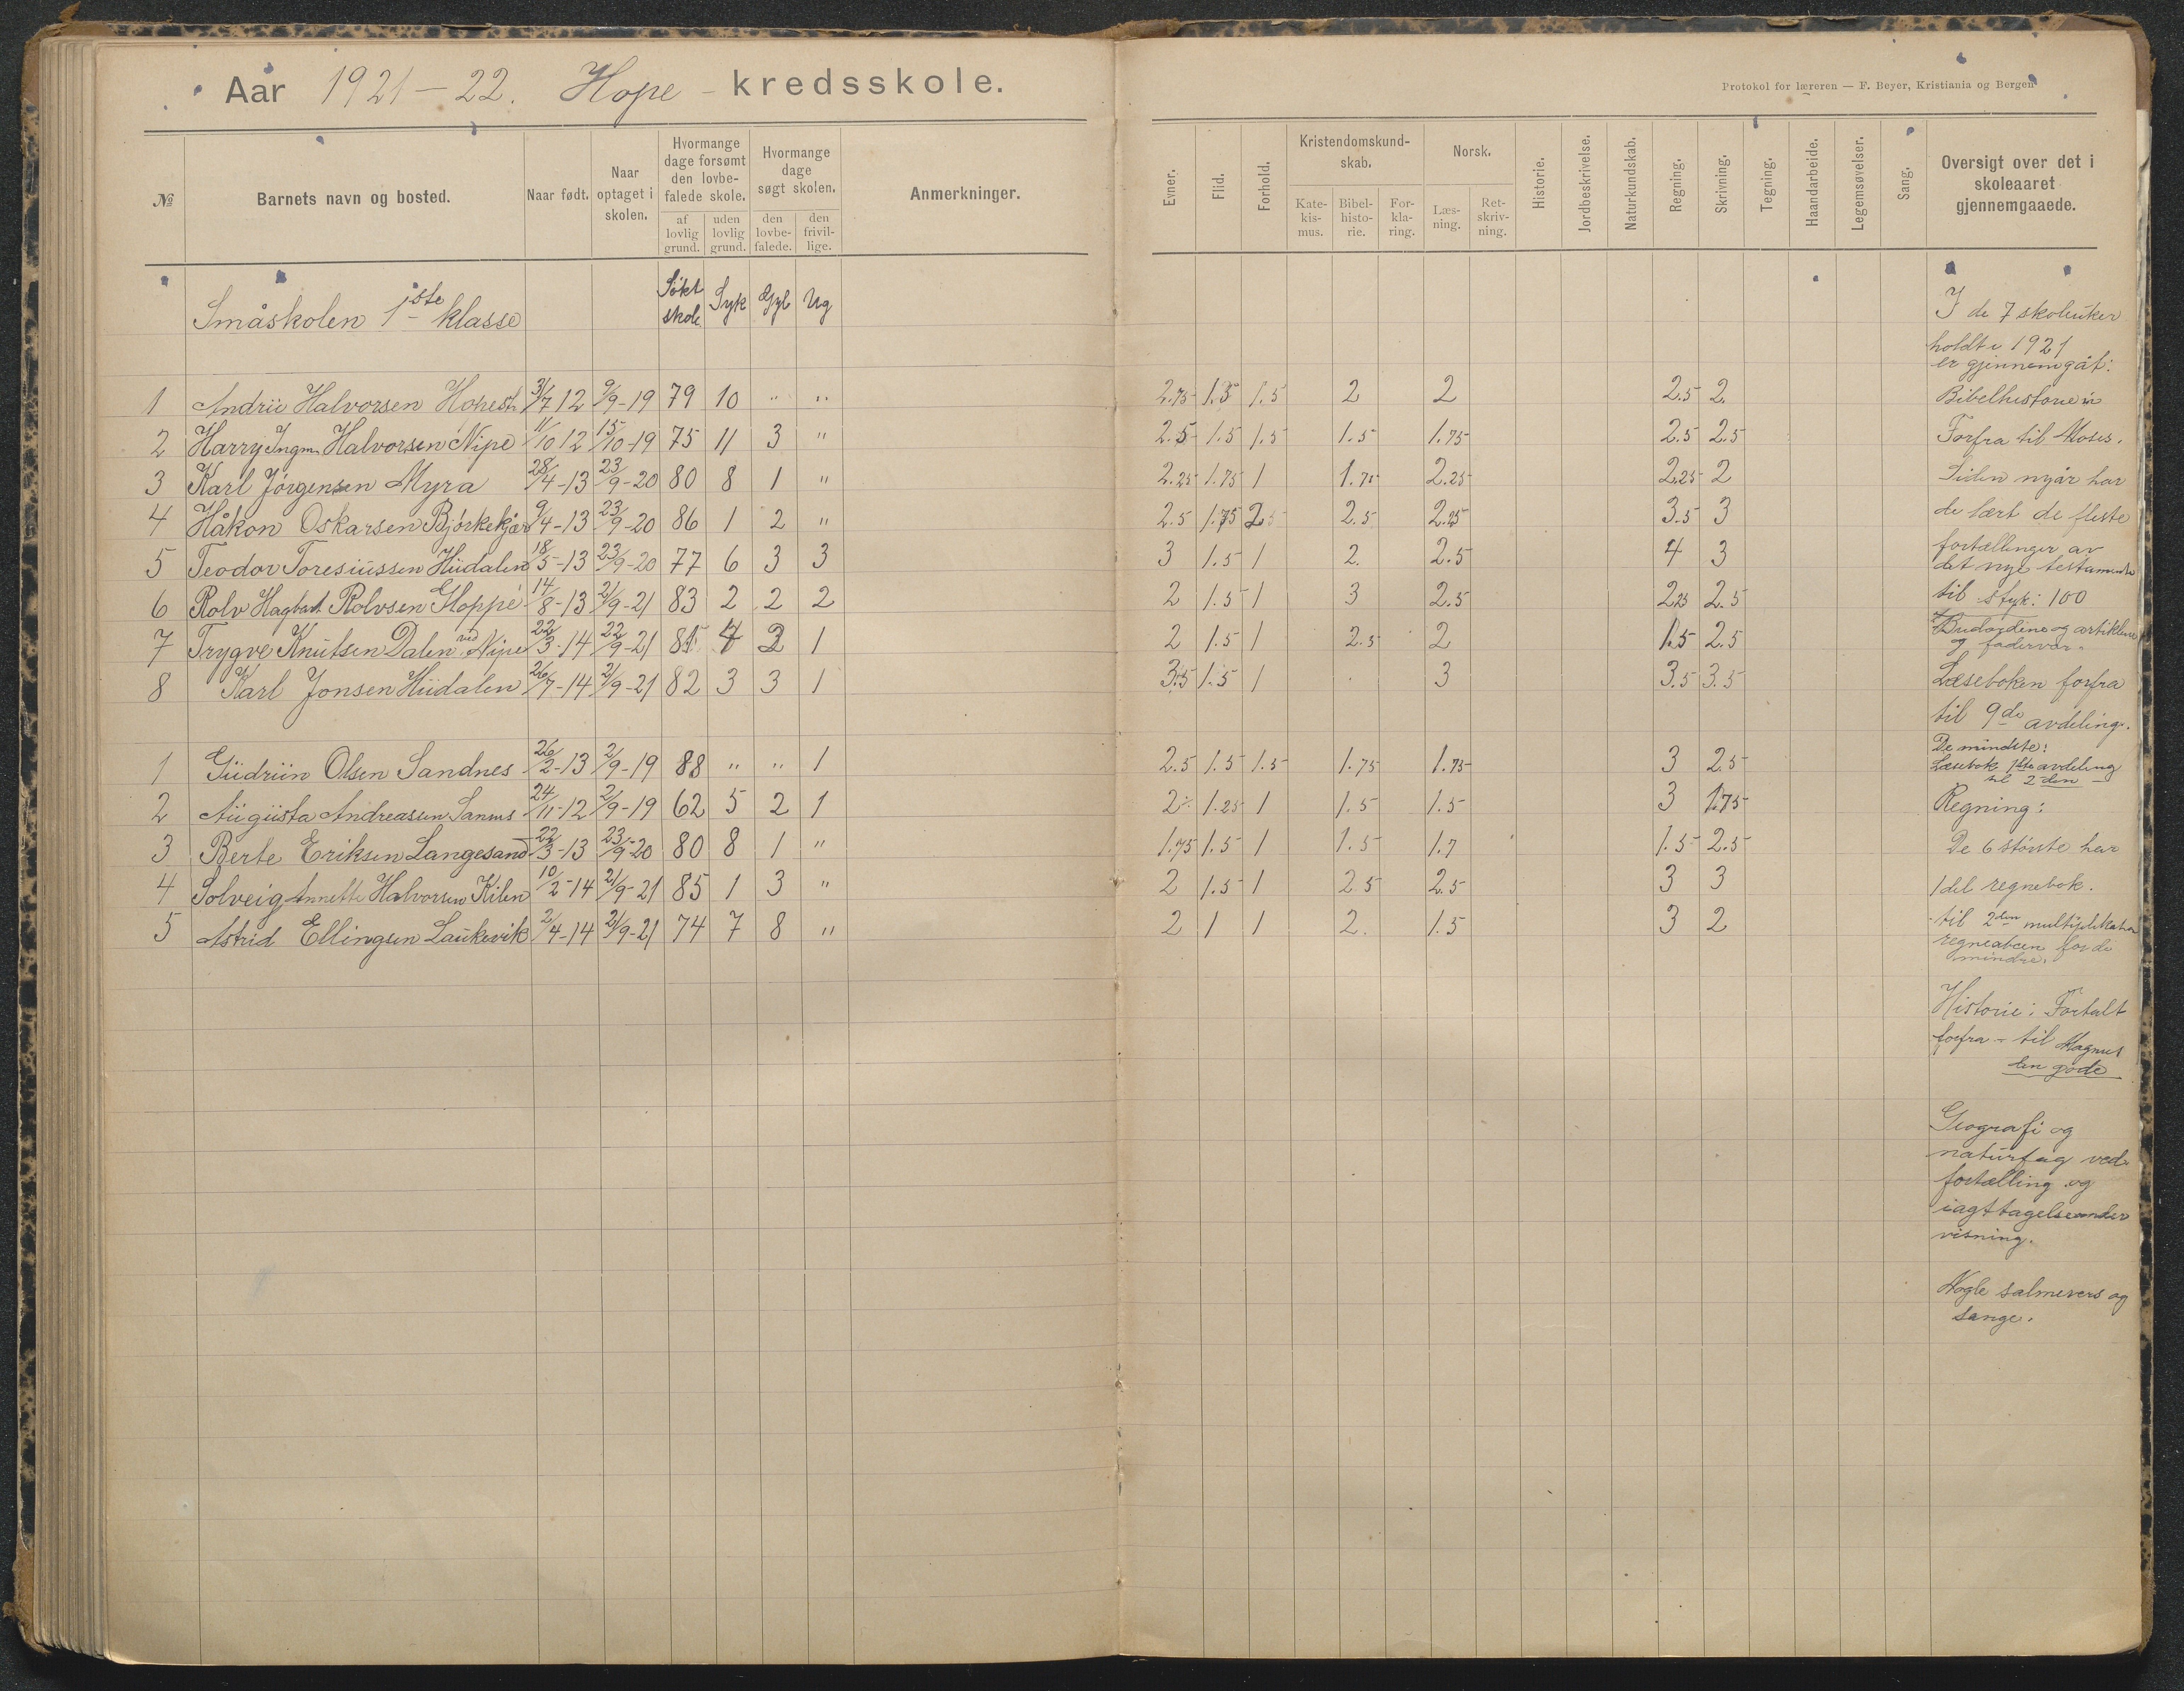 Aar 1921-22. Hope - kredsskole.
Protokol for læreren — F. Beyer, Kristiania og Bergen
№ Barnets navn og bosted. Naar født. Naar optaget i skolen. Hvormange dage forsømt den lovbefalede skole. af lovlig grund. uden lovlig grund. Hvormange dage søgt skolen. den lovbefalede. den frivillige. Anmerkninger.
Evner. Flid. Forhold. Kristendomskundskab. Katekismus. Bibelhistorie. Forklaring. Norsk. Læsning. Retskrivning. Historie. Jordbeskrivelse. Naturkundskab. Regning. Skrivning. Tegning. Haandarbeide. Legemsøvelser. Sang. Oversigt over det i skoleaaret gjennemgaaede.
Småskolen 1ste klasse Søkt skole Syk Gyl Ug
1 Andrii Halvorsen 31/7 12 9/9-19 79 10 " " 2.75 1.5 1.5 2 2 2.5 2.
2 Harry Ingm. Halvorsen Nipe 11/10 12 15/10-19 75 11 3 " 2.5 1.5 1.5 1.5 1.75 2.5 2.5
3 Karl Jörgensen Myra 28/4-13 23/9-20 80 8 1 " 2.25 1.75 1 1.75 2.25 2.25 2
4 Håkon Oskarsen Bjørkekjær 9/4-13 23/9-20 86 1 2 " 2.5 1.75 2.5 2.5 2.25 3.5 3
5 Teodor Toresiussen Hüdalen 18/5-13 23/9-20 77 6 3 3 3 1.5 1 2. 2.5 4 3
6 Rolv Hagbart Rolvsen Hoppé 14/8-13 21/9-21 83 2 2 2 2 1.5 1 3 2.5 2.25 2.5
7 Trygve Knutsen Dalen ved Nipe 22/3-14 22/9-21 81 4 2 1 2 1.5 1 2.5 2 1.5 2.5
8 Karl Jonsen Hüdalen 26/7-14 21/9-21 82 3 3 1 3.5 1.5 1 3 3.5 3.5
1 Güdrün Olsen Sandnes 26/2-13 2/9-19 88 " " 1 2.5 1.5 1.5 1.75 1.75 3 2.5
2 Augusta Andreassen Sannes 24/11-12 2/9-19 62 5 2 1 2 1.25 1 1.5 1.5 3 1.75
3 Berte Eriksen Langesand 22/3-13 23/9-20 80 8 1 " 1.75 1.5 1 1.5 1.7 1.5 2.5
4 Solveig Annette Halvorsen Kilen 10/2-14 21/9-21 85 1 3 " 2 1.5 1 2.5 2.5 3 3
5 Astrid Ellingsen Laukevik 2/4-14 21/9-21 74 7 8 " 2 1 1 2. 1.5 3 2
I de 7 skoleuker
holdt i 1921
er gjennemgåt:
Bibelhistorie
Forfra til Moses.
Siden nyår har
de lært de fleste
fortællinger av
det nye testamente
til styk: 100
Budordene og artiklene
og fadervor.
Læseboken forfra
til 9de avdeling.
De mindste:
Læsebok 1ste avdeling
til 2den
Regning:
De 6 største har
1 del regnebok.
til 2den multiplikation
regneabcen for de
mindre.
Historie: Fortalt
forfra - til Magnus
den gode
Geografi og
naturfag ved
fortælling og
iagttagelsesunder
visning.
Nogle salmevers og
sange.